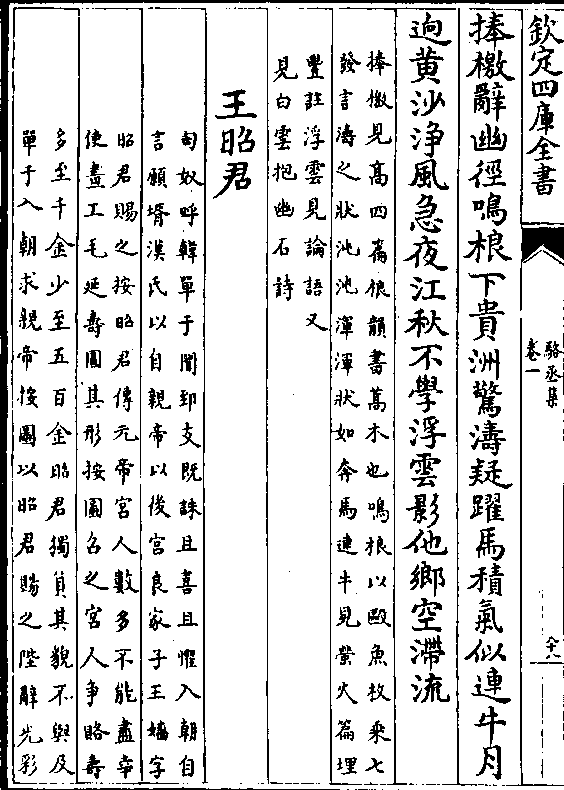 欽定四庫全書
駱丞集
卷一
六十八
捧檄辭幽徑鳴榔下貴洲驚濤疑躍馬積氣似連牛月
逈黄沙浄風急夜江秋不學浮雲影他鄉空滯流
捧檄見髙四嵩榔韻書髙木也鳴榔以敺魚枚乗七
發言濤之狀沌沌渾渾狀如奔馬連牛見螢火篇埋
豐註浮雲見論語又
見白雲抱幽石詩
王昭君
匈奴呼韓單于聞郅支既誅且喜且懼入朝自
言願壻漢氏以自親帝以後宮良家子王嬙字
昭君賜之按昭君傳元帝宮人數多不能盡幸
使畫工毛延壽圖其形按圖召之宮人爭賂壽
多至千金少至五百金昭君獨負其貌不與及
單于入朝求親帝按圖以昭君賜之陛辭光彩